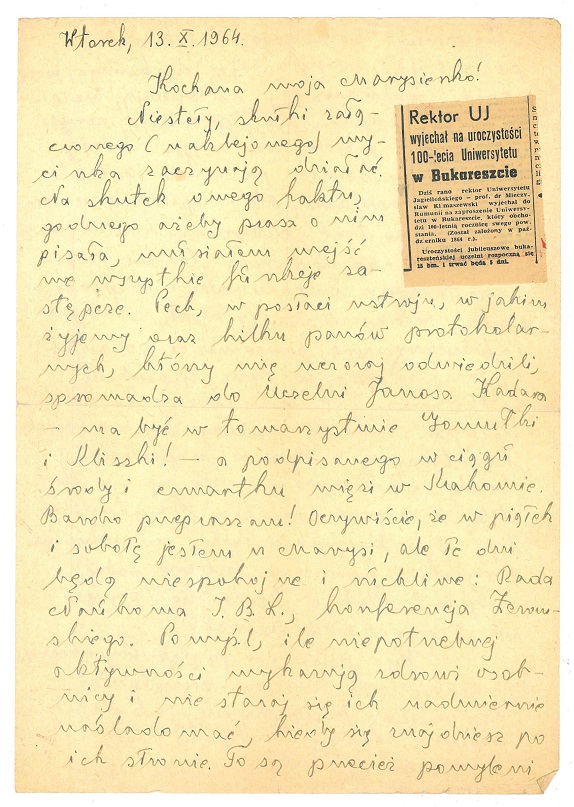 Wtorek, 13. X. 1964.
Kochana moja Marysieńko!
Niestety, skutki załą-
czonego (naklejonego) wy-
cinka zaczynają działać.
Na skutek owego faktu,
godnego ażeby prasa o nim
pisała, musiałem wejść
we wszystkie funkcje za-
stępcze. Pech, w postaci ustroju, w jakim
żyjemy oraz kilku panów protokolar-
nych, którzy mię wczoraj odwiedzili,
sprowadza do Uczelni Janosa Kadara
– ma być w towarzystwie Gomułki
i Kliszki! – a podpisanego w ciągu
środy i czwartku więzi w Krakowie.
Bardzo przepraszam! Oczywiście, że w piątek
i sobotę jestem u Marysi, ale te dni
będą niespokojne i ruchliwe: Rada
Naukowa I.B.L., konferencja Żerom-
skiego. Pomyśl, ile niepotrzebnej
aktywności wykazują zdrowi osob-
nicy i nie staraj się ich nadmiernie
naśladować, kiedy się znajdziesz po
ich stronie. To są przecież pomyleni
Rektor UJ
wyjechał na uroczystości
100-lecia Uniwersytetu
w Bukareszcie
Dziś rano rektor Uniwersytetu
Jagiellońskiego – prof. dr Mieczy-
sław Klimaszewski wyjechał do
Rumunii na zaproszenie Uniwersy-
tetu w Bukareszcie, który obcho-
dzi 100-letnią rocznicę swego pow-
stania. (Został założony w paź-
dzierniku 1864 r.).
Uroczystości jubileuszowe buka-
reszteńskiej uczelni rozpoczną się
15 bm. i trwać będą 5 dni.